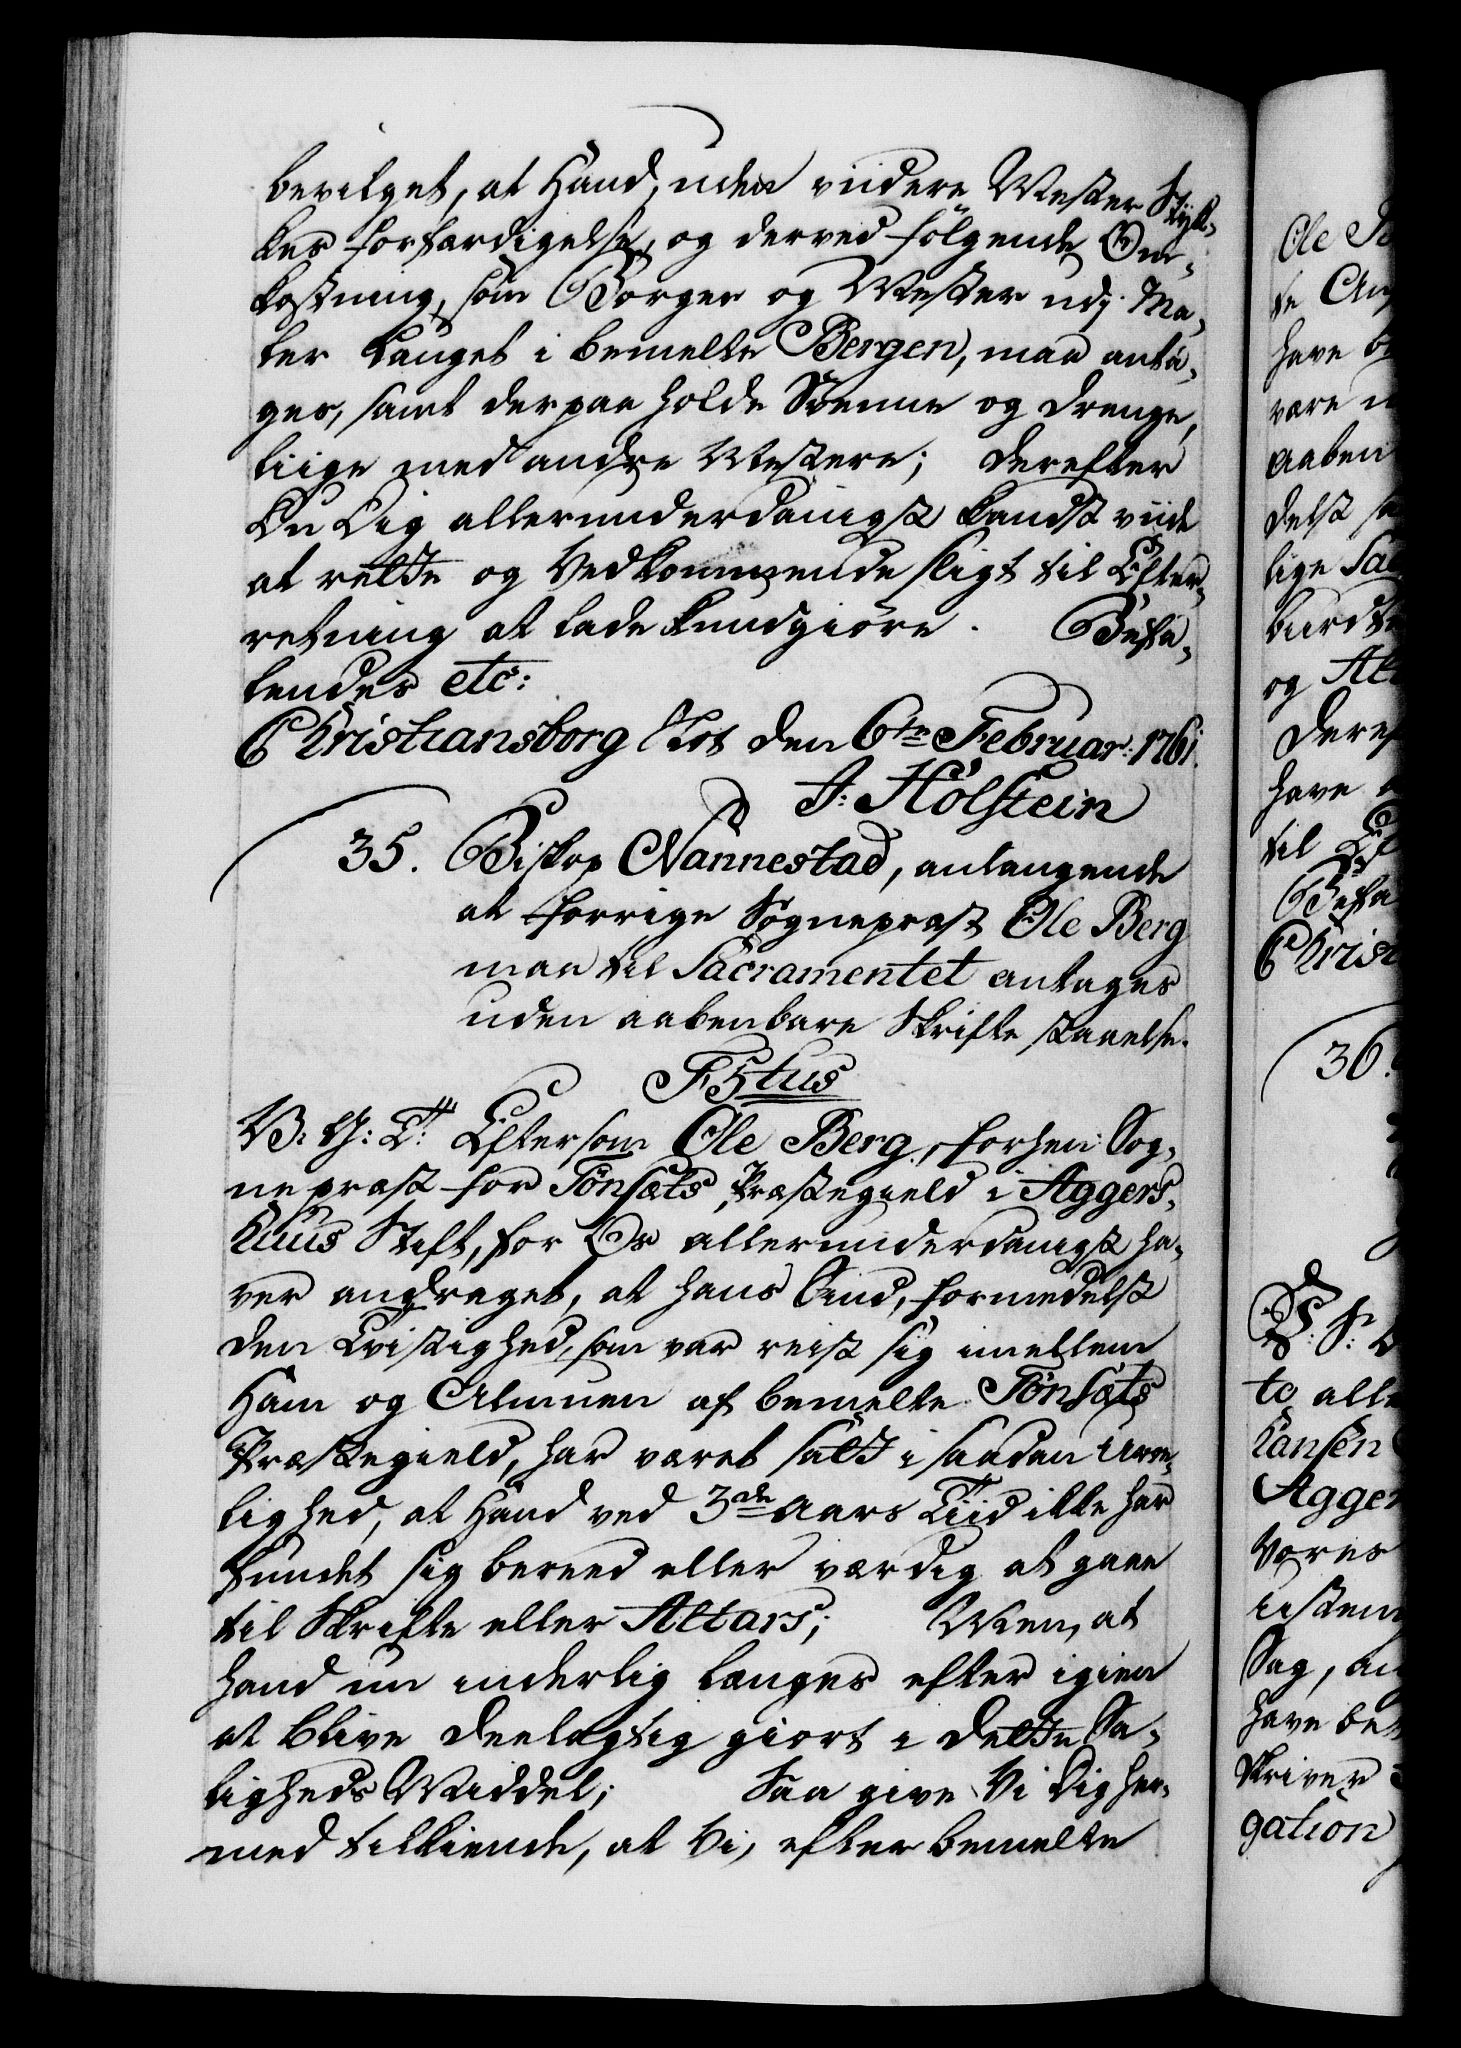 bevilget, at Hand, uden viidere Mester Styk-
kes forfærdigelse, og derved følgende Om-
kostning, som Borger og Mester udj Ma-
ler Lauget i bemelte Bergen, maa anta-
ges, samt derpaa holde Svenne og Drenge,
liige med andre Mestere; Derefter
Du Dig allerunderdanigst kandst viide
at rette og Vedkommende sligt til Efter-
retning at lade kundgiøre. Befa-
lendes etc:
Christiansborg Slot den 6te Februar: 1761.
J: Holstein
35. Biskop Nannestad, anlangende
at forrige Sogneprest Ole Berg
maa til Sacramentet antages
uden aabenbare Skrifte staaelse.
F5tus
V: G: T: Eftersom Ole Berg, forhen Sog-
neprest for Tønsæts Præstegield i Aggers-
huus Stift, for Os allerunderdanigst ha-
ver andraget, at hans Sind, formedelst
den Tvistighed, som var reist sig imellem
Ham og Almuen af bemelte Tønsæts
Præstegield, har været satt i saadan Uroe-
lighed, at Hand ved 3de Aars Tiid ikke har
fundet sig bereed eller værdig at gaae
til Skrifte eller Altars; Men, at
Hand nu inderlig længes efter igien
at blive deelagtig giort i dette Sa-
ligheds Middel; Saa give Vi Dig her-
med tilkiende, at Vi, efter bemelte
Ole
te
have
være
aaben
delst
lige
og
Deref
have
til
Befa
Christ
36.
to alle
Hansen
Agger
Vores
Sag,
have be
Skriver
gation